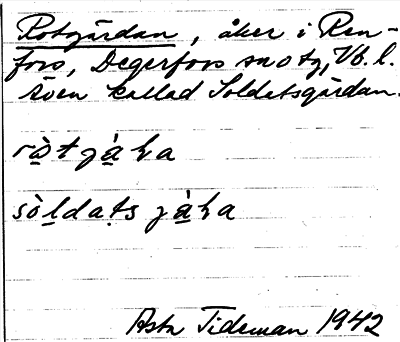 Rotgärdan, åker i Ren-
fors, Degerfors sn o tg, Vb. l.
Även kallad Soldatsgärdan.
ròtgàʀa
sòldats jàʀa
Asta Tideman 1942